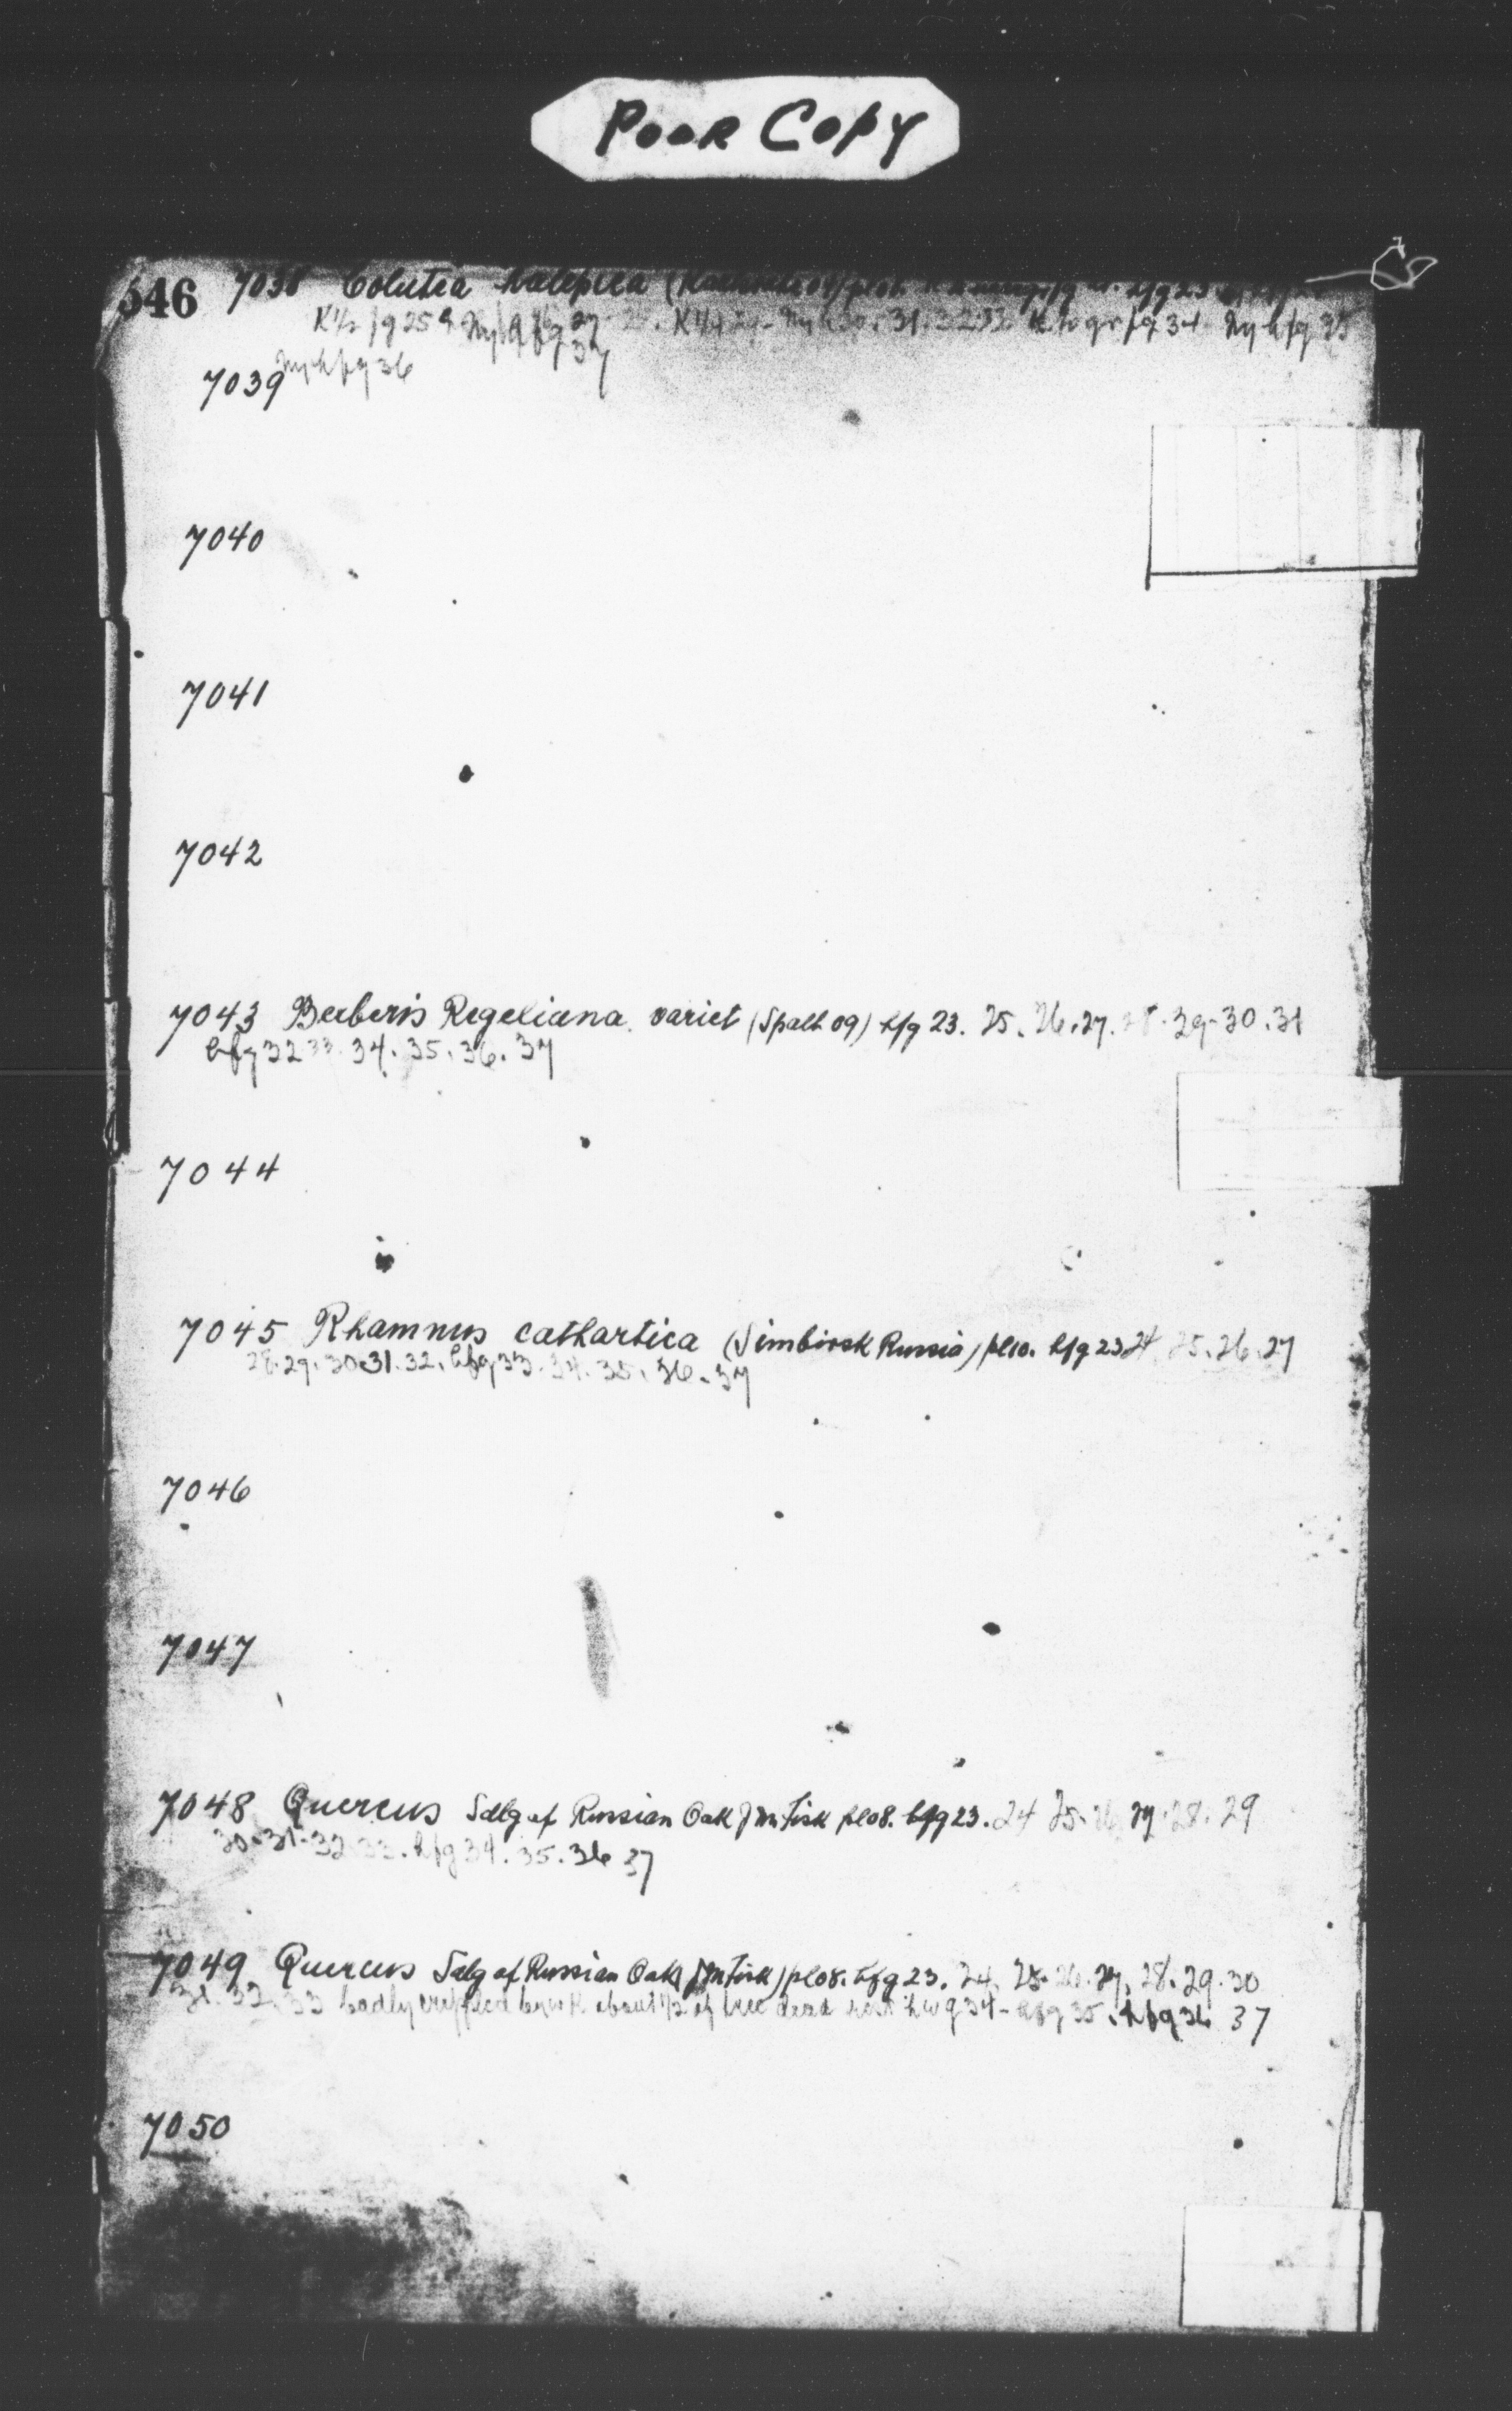 POOR COPY
546 7038 Colutea halepica
K 1/2 fg 25 27 31. 32 fg 34 35
37
7039 fg 36
7040
7041
7042
7043 Berberis Regeliana variet (Spath 09) hfg 23. 25. 26. 27. 28. 29. 30. 31
hfg 32 33. 34. 35. 36. 37
7044
7045 Rhamnus cathartica (Simbirsk Russia) pl10. hfg 23 24. 25. 26. 27
28. 29. 30. 31. 32. hfg 33. 34. 35. 36. 37
7046
7047
7048 Quercus Sdlg of Russian Oak J M Fisk pl08. hfg 23. 24 25. 26 27. 28. 29
30. 31. 32 33. hfg 34. 35. 36 37
7049 Quercus Sdlg of Russian Oak J M Fisk) pl08. hfg 23. 24. 25. 26. 27. 28. 29. 30
31. 32. 33 badly crippled about 1/2 of tree dead g 34 - hfg 35. hfg 36 37
7050